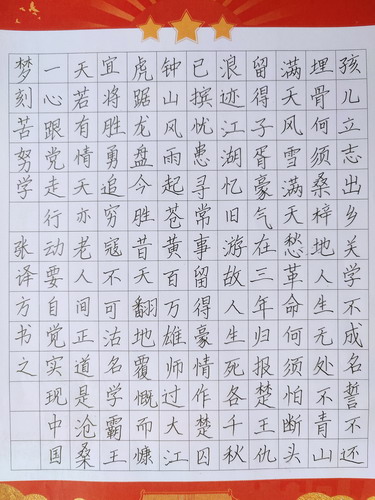 孩儿立志出乡关学不成名誓不还
埋骨何须桑梓地人生无处不青山
满天风雪满天愁革命何须怕断头
留得子胥豪气在三年归报楚王仇
浪迹江湖忆旧游故人生死各千秋
已摈忧患寻常事留得豪情作楚囚
钟山风雨起苍黄百万雄师过大江
虎踞龙盘今胜昔天翻地覆慨而慷
宜将胜勇追穷寇不可沽名学霸王
天若有情天亦老人间正道是沧桑
一心跟党走行动要自觉实现中国
梦刻苦努学 张译方书之